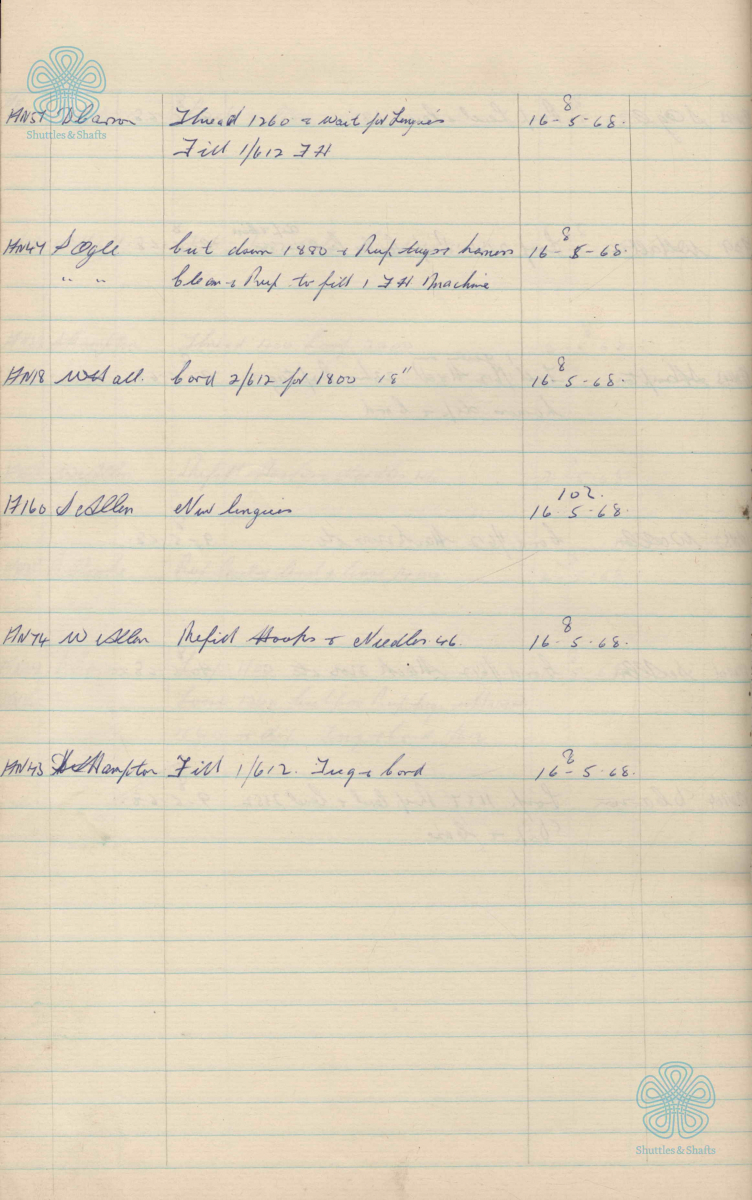 8
HN51 D Carson Thread 1260 & wait for Lingoes 16-5-68.
Shuttles & Shafts
Fill 1/612 FH
8
HN47 S Ogle Cut down 1880 & Prep tugs & harness 16-5-68.
" " Clean & Prep to fill 1 FH Machine
8
HN18 W Hall. Cord 2/612 for 1800 18" 16-5-68.
102.
H160 S Allen New lingoes 16-5-68.
8
HN74 W Allen Refill Hooks & Needles 46. 16-5-68.
8
HN43 Hampton Fill 1/612. Tug & Cord 16-5-68.
Shuttles & Shafts